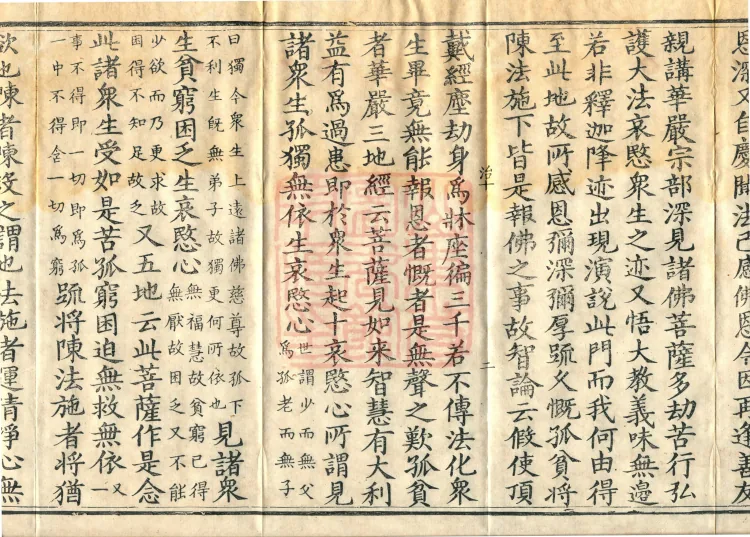 恩深又自慶勝法已感佛恩今因再逢善友
親講華嚴宗部深見諸佛菩薩多劫苦行弘
護大法哀愍衆生之迹又悟大教義味無邊
若非釋迦降迹出現演說此門而我何由得
至此地故所感恩彌深彌厚䟽久慨孤貧將
陳法施下皆是報佛之事故智論云假使頂
治十 二
戴經塵劫身爲牀座徧三千若不傳法化衆
生畢竟無能報恩者慨者是無聲之歎孤貧
者華嚴三地經云菩薩見如来智慧有大利
益有爲過患即於衆生起十哀愍心所謂見
諸衆生孤獨無依生哀愍心世謂少而無父爲孤老而無子
曰獨今衆生上遠諸佛慈尊故孤下不利生旣無弟子故獨更何所依也見諸衆
生貧窮困乏生哀愍心無福慧故貧窮已得無厭故困乏又不能
少欲而乃更求故困得不知足故乏又五地云此菩薩作是念
此諸衆生受如是苦孤窮困迫無救無依又一
事不得即一切即爲孤一中不得舍一切爲窮䟽將陳法施者將猶
欲也陳者陳設之謂也法施者運清淨心無